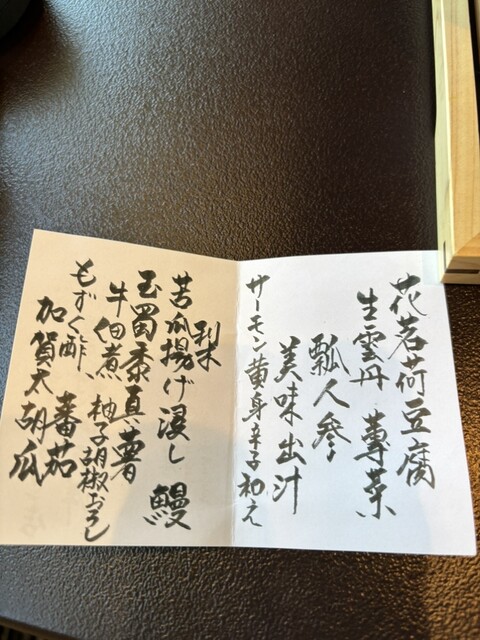 花茗荷豆腐
生雲丹 蓴菜
瓢人参
美味出汁
サーモン黄身辛子和え
苦瓜揚げ浸し 鰻
玉蜀黍真薯
牛佃煮 柚子胡椒おろし
もずく酢、蕃茄
加賀太胡瓜